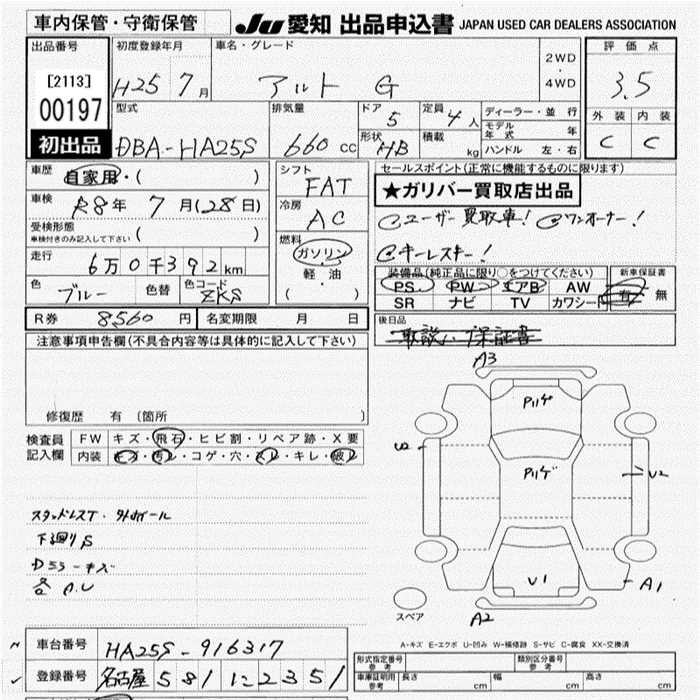 車内保管・守衛保管
JU 愛知 出品申込書 JAPAN USED CAR DEALERS ASSOCIATION
出品番号 初度登録年月 車名・グレード 2WD・4WD 評価点
[2113] 00197 H25 7月 アルト G 3.5
型式 排気量 ドア 5 定員 4人 ディーラー・並行 外装 内装
モデル年式 年
初出品 DBA-HA25S 660cc 形状 HB 積載 kg ハンドル 左・右 C C
車歴 自家用・( ) シフト FAT セールスポイント(正常に機能するものに限ります)
★ガリバー買取店出品
車検 R8年 7月(28日) 冷房 AC ユーザー買取車! ワンオーナー!
受検形態 車検付きのみ記入して下さい ( ) 燃料 ガソリン・軽・油 ( ) キーレスキー!
走行 6万0千392km 装備品(純正品に限り○をつけてください) 新車保証書
PS PW エアB AW 有・無
色 ブルー 色替 色コード ZKS SR ナビ TV カワシート
R券 8560円 名変期限 月 日 後日品
取説 保証書
注意事項申告欄(不具合内容等は具体的に記入して下さい)
A3
修復歴 有 〔箇所
検査員記入欄 FW キズ・飛石・ヒビ割・リペア跡・X要
内装 キズ・汚レ・コゲ・穴・スレ・キレ・破レ
Pハゲ
U2
Pハゲ
U2
スタッドレスT・外ホイール
下廻りS
各A.U
U1
A1
スペア
A2
車台番号 HA25S-916317
A-キズ E-エクボ U-凹み W-補修跡 S-サビ C-腐食 XX-交換済
登録番号 名古屋 581 に 2351
形式指定番号 参考 類別区分番号 参考
車庫証明用 参考 長さ cm 幅 cm 高さ cm